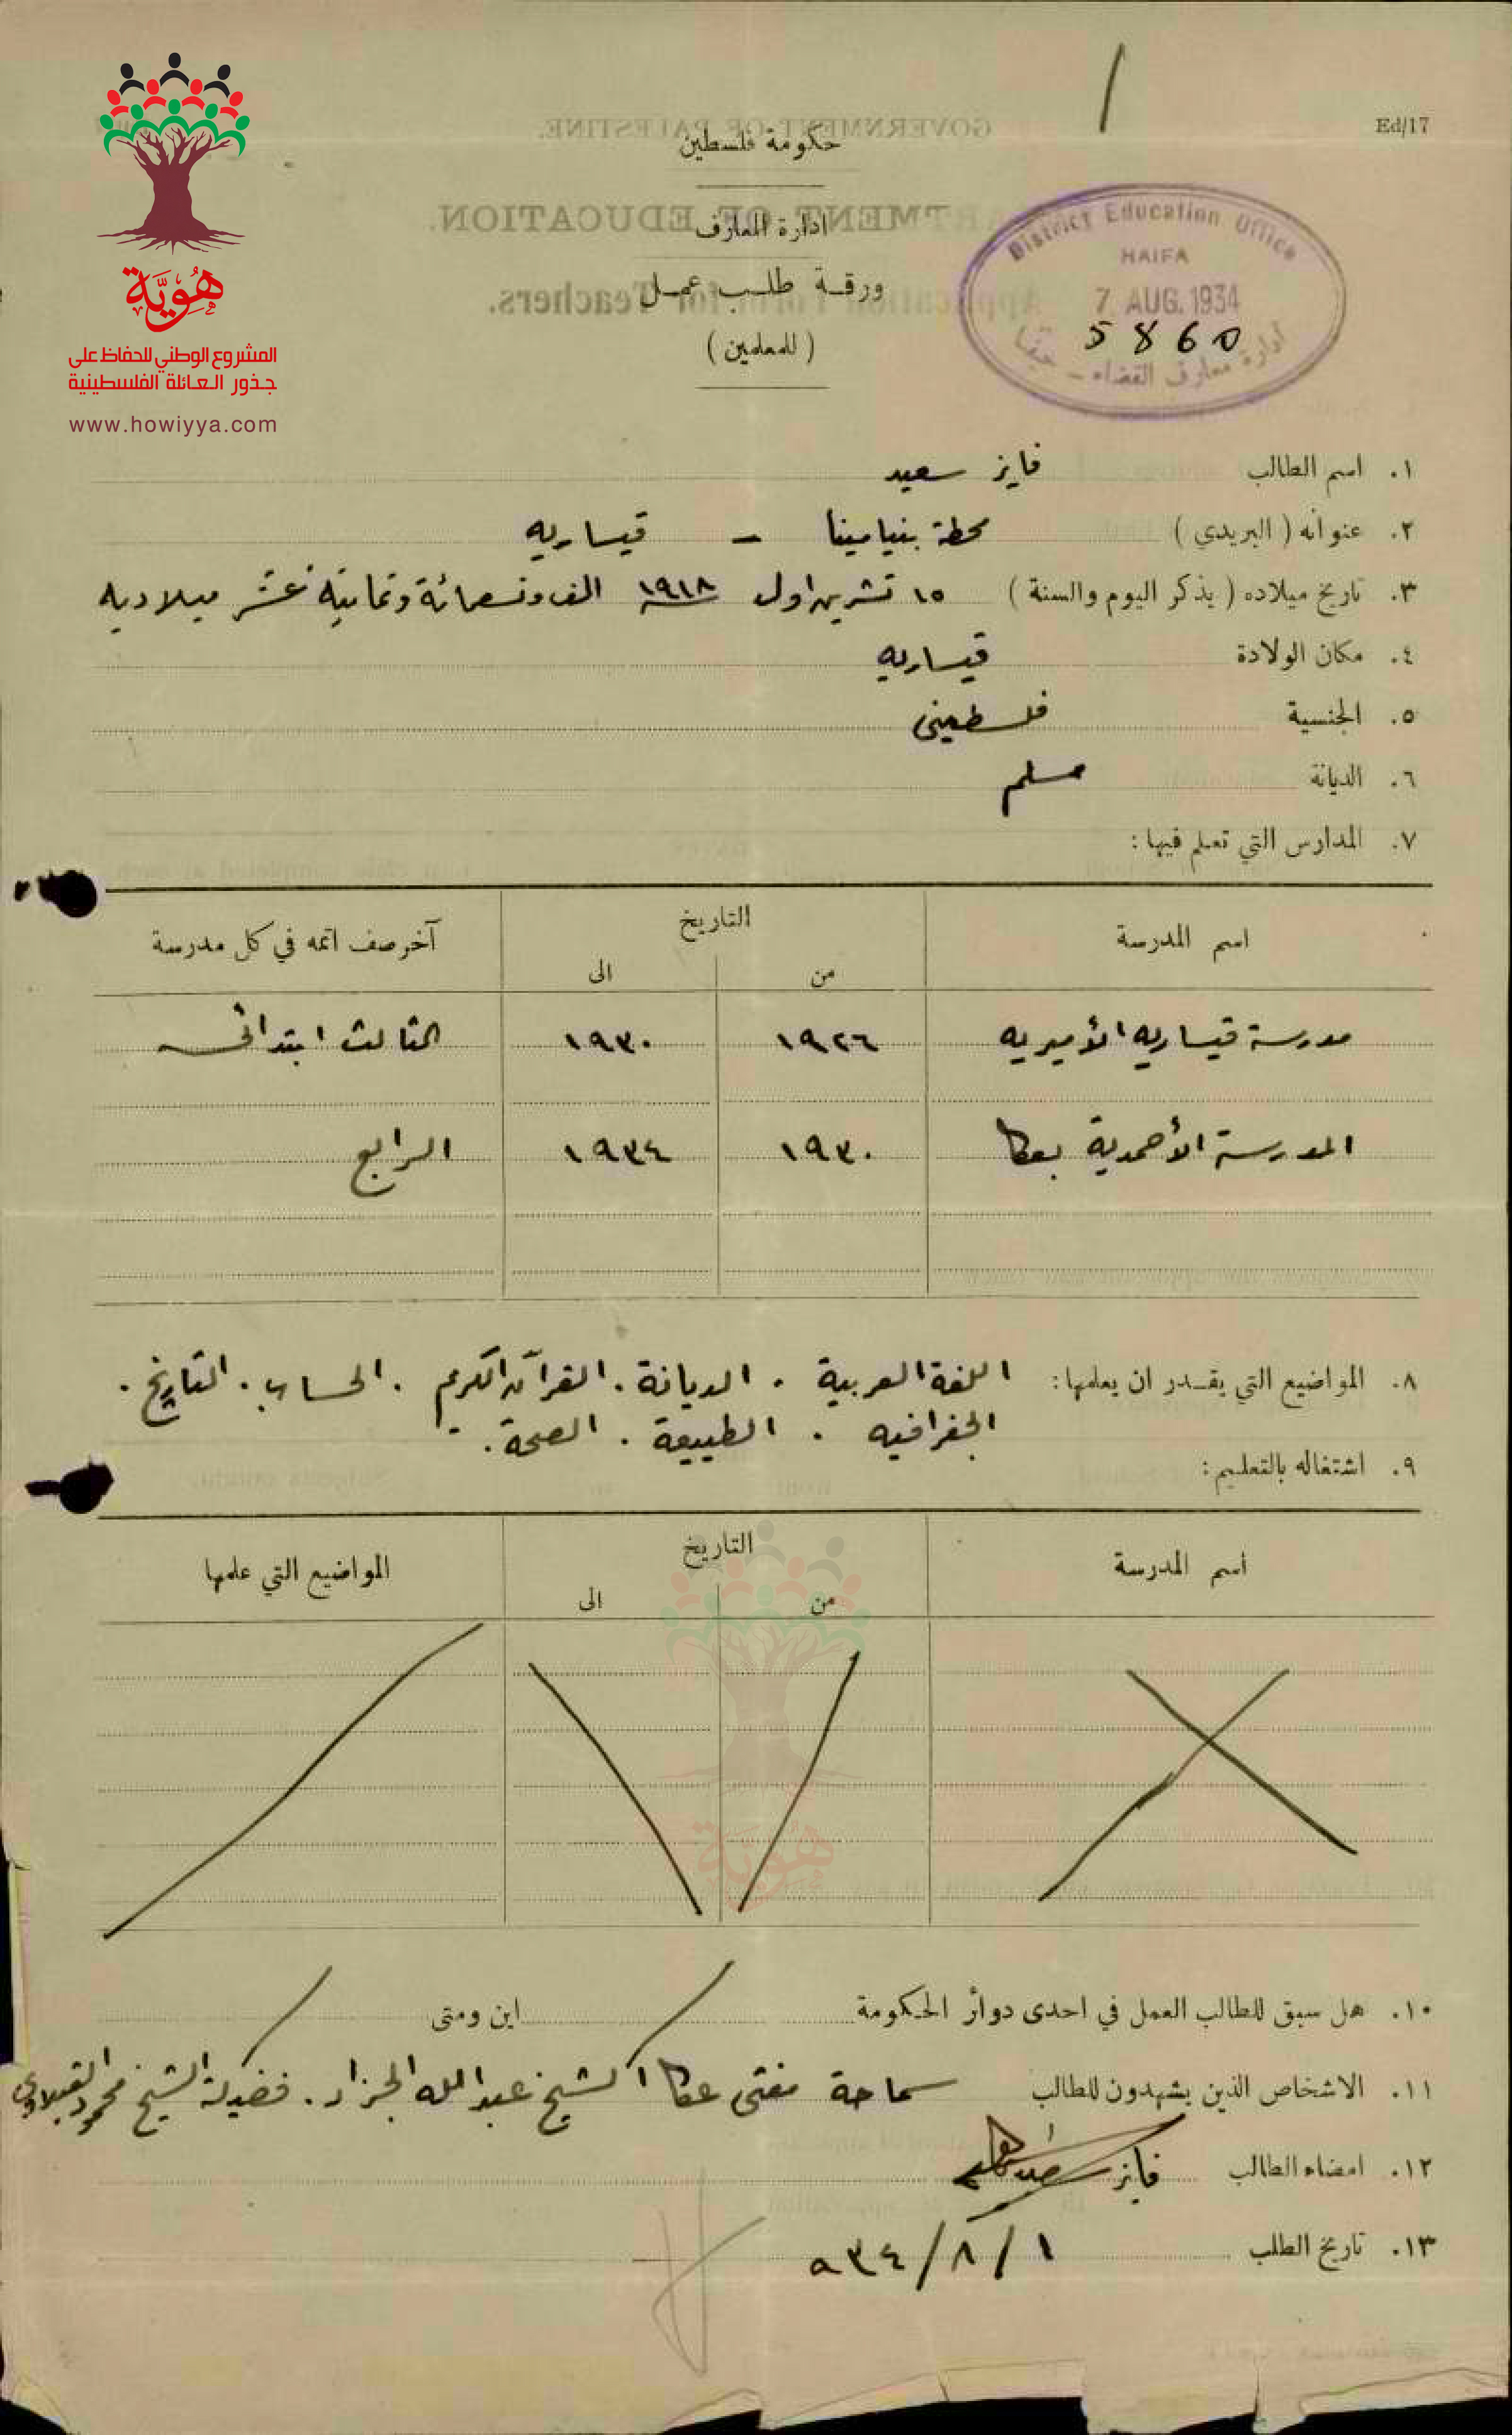 Ed/17
حكومة فلسطين
ادارة المعارف
ورقة طلب عمل
( للمعلمين )
District Education Office
HAIFA
7 AUG. 1934
5860
ادارة معارف القضاء - حيفا
هُوِيَّة
المشروع الوطني للحفاظ على
جذور العائلة الفلسطينية
www.howiyya.com
GOVERNMENT OF PALESTINE.
DEPARTMENT OF EDUCATION.
Application Form for Teachers.
١. اسم الطالب فايز سعيد
٢. عنوانه ( البريدي ) محطة بنيامينا - قيساريه
٣. تاريخ ميلاده ( يذكر اليوم والسنة ) ١٥ تشرين اول ١٩١٨ الف وتسعمائة وثمانية عشر ميلاديه
٤. مكان الولادة قيساريه
٥. الجنسية فلسطيني
٦. الديانة مسلم
٧. المدارس التي تعلم فيها :
اسم المدرسة التاريخ آخر صف اتمه في كل مدرسة
من الى
مدرسة قيساريه الأميريه ١٩٢٦ ١٩٣٠ الثالث ابتدائي
المدرسة الأحمدية بعكا ١٩٣٠ ١٩٣٤ الرابع
٨. المواضيع التي يقدر ان يعلمها : اللغة العربية . الديانة . القرآن الكريم . الحساب . التاريخ .
الجغرافيه . الطبيعة . الصحة .
٩. اشتغاله بالتعليم :
اسم المدرسة التاريخ المواضيع التي علمها
من الى
هوية
١٠. هل سبق للطالب العمل في احدى دوائر الحكومة اين ومتى
١١. الاشخاص الذين يشهدون للطالب سماحة مفتي عكا الشيخ عبد الله الجزار . فضيلة الشيخ محمود
١٢. امضاء الطالب فايز سعيد
١٣. تاريخ الطلب ١/٨/٩٣٤